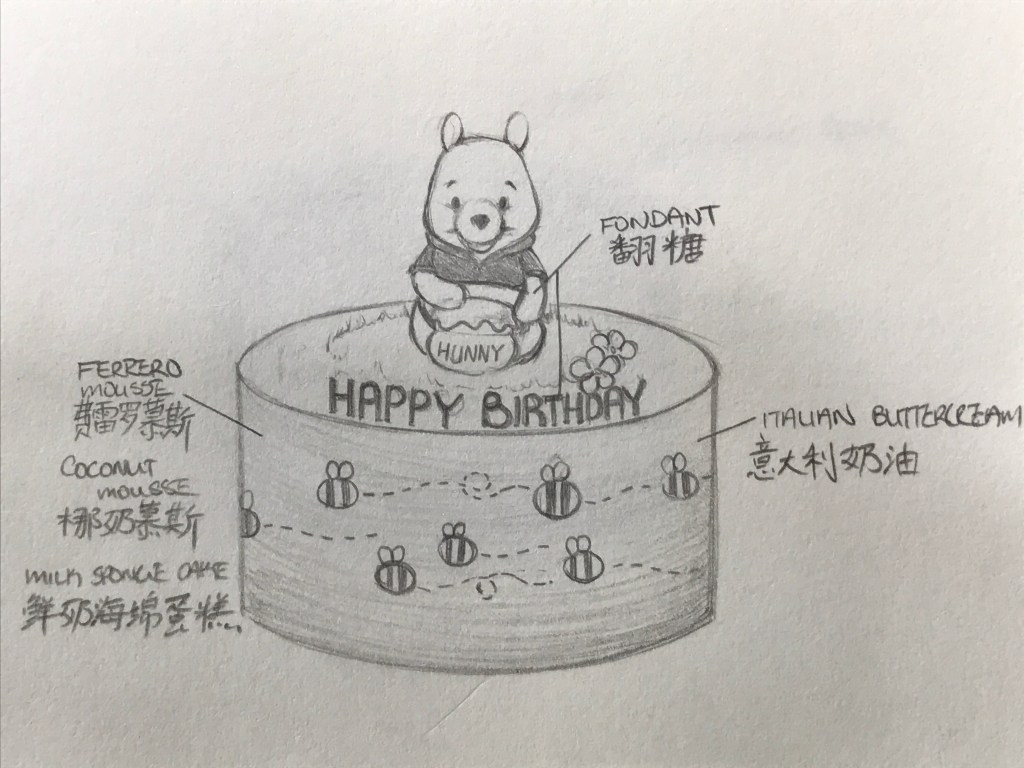 FONDANT
翻糖
HUNNY
HAPPY BIRTHDAY
FERRERO
MOUSSE
费雷罗慕斯
COCONUT
MOUSSE
梛奶慕斯
MILK SPONGE CAKE
鲜奶海绵蛋糕
ITALIAN BUTTERCREAM
意大利奶油